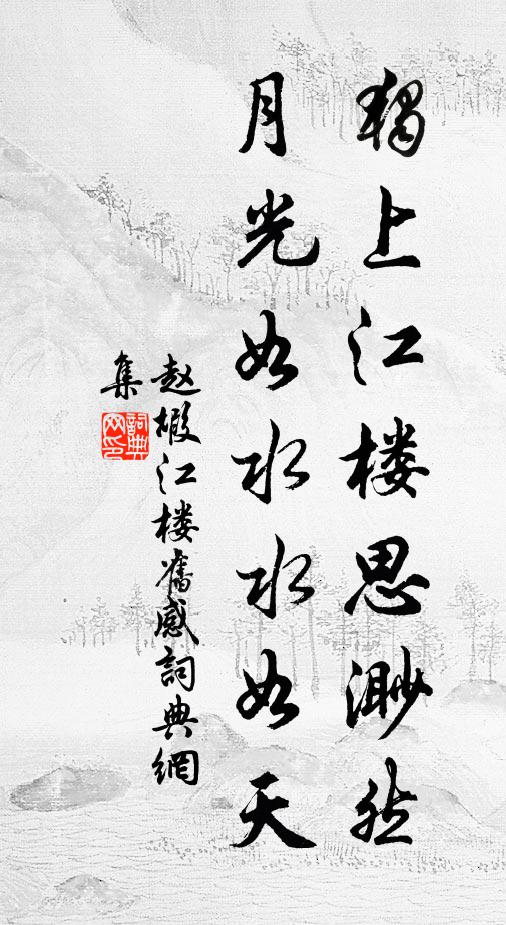 独上江楼思渺然
月光如水水如天
赵嘏江楼旧感词典網
集
詞典網印